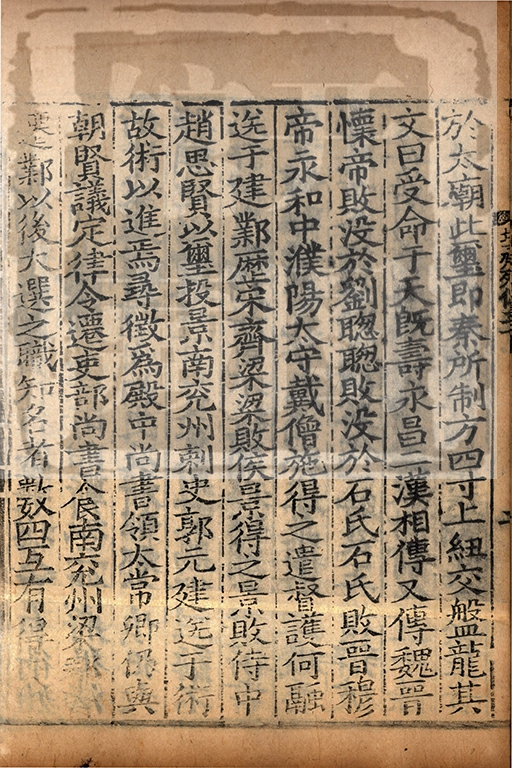 於太廟此璽即秦所制方四寸上紐交盤龍其
文曰受命于天旣壽永昌二漢相傳又傳魏晉
懷帝敗没於劉聦聦敗没於石氏石氏敗晉穆
帝永和中濮陽太守戴僧施得之遣督護何融
送于建鄴歴宋齊梁梁敗侯景得之景敗侍中
趙思賢以璽投景南兖州刺史郭元建送于術
故術以進焉尋徴爲殿中尚書領太常卿仍與
朝賢議定律令遷吏部尚書食南兖州梁郡
鄴以後大選之職知名者數四互有得